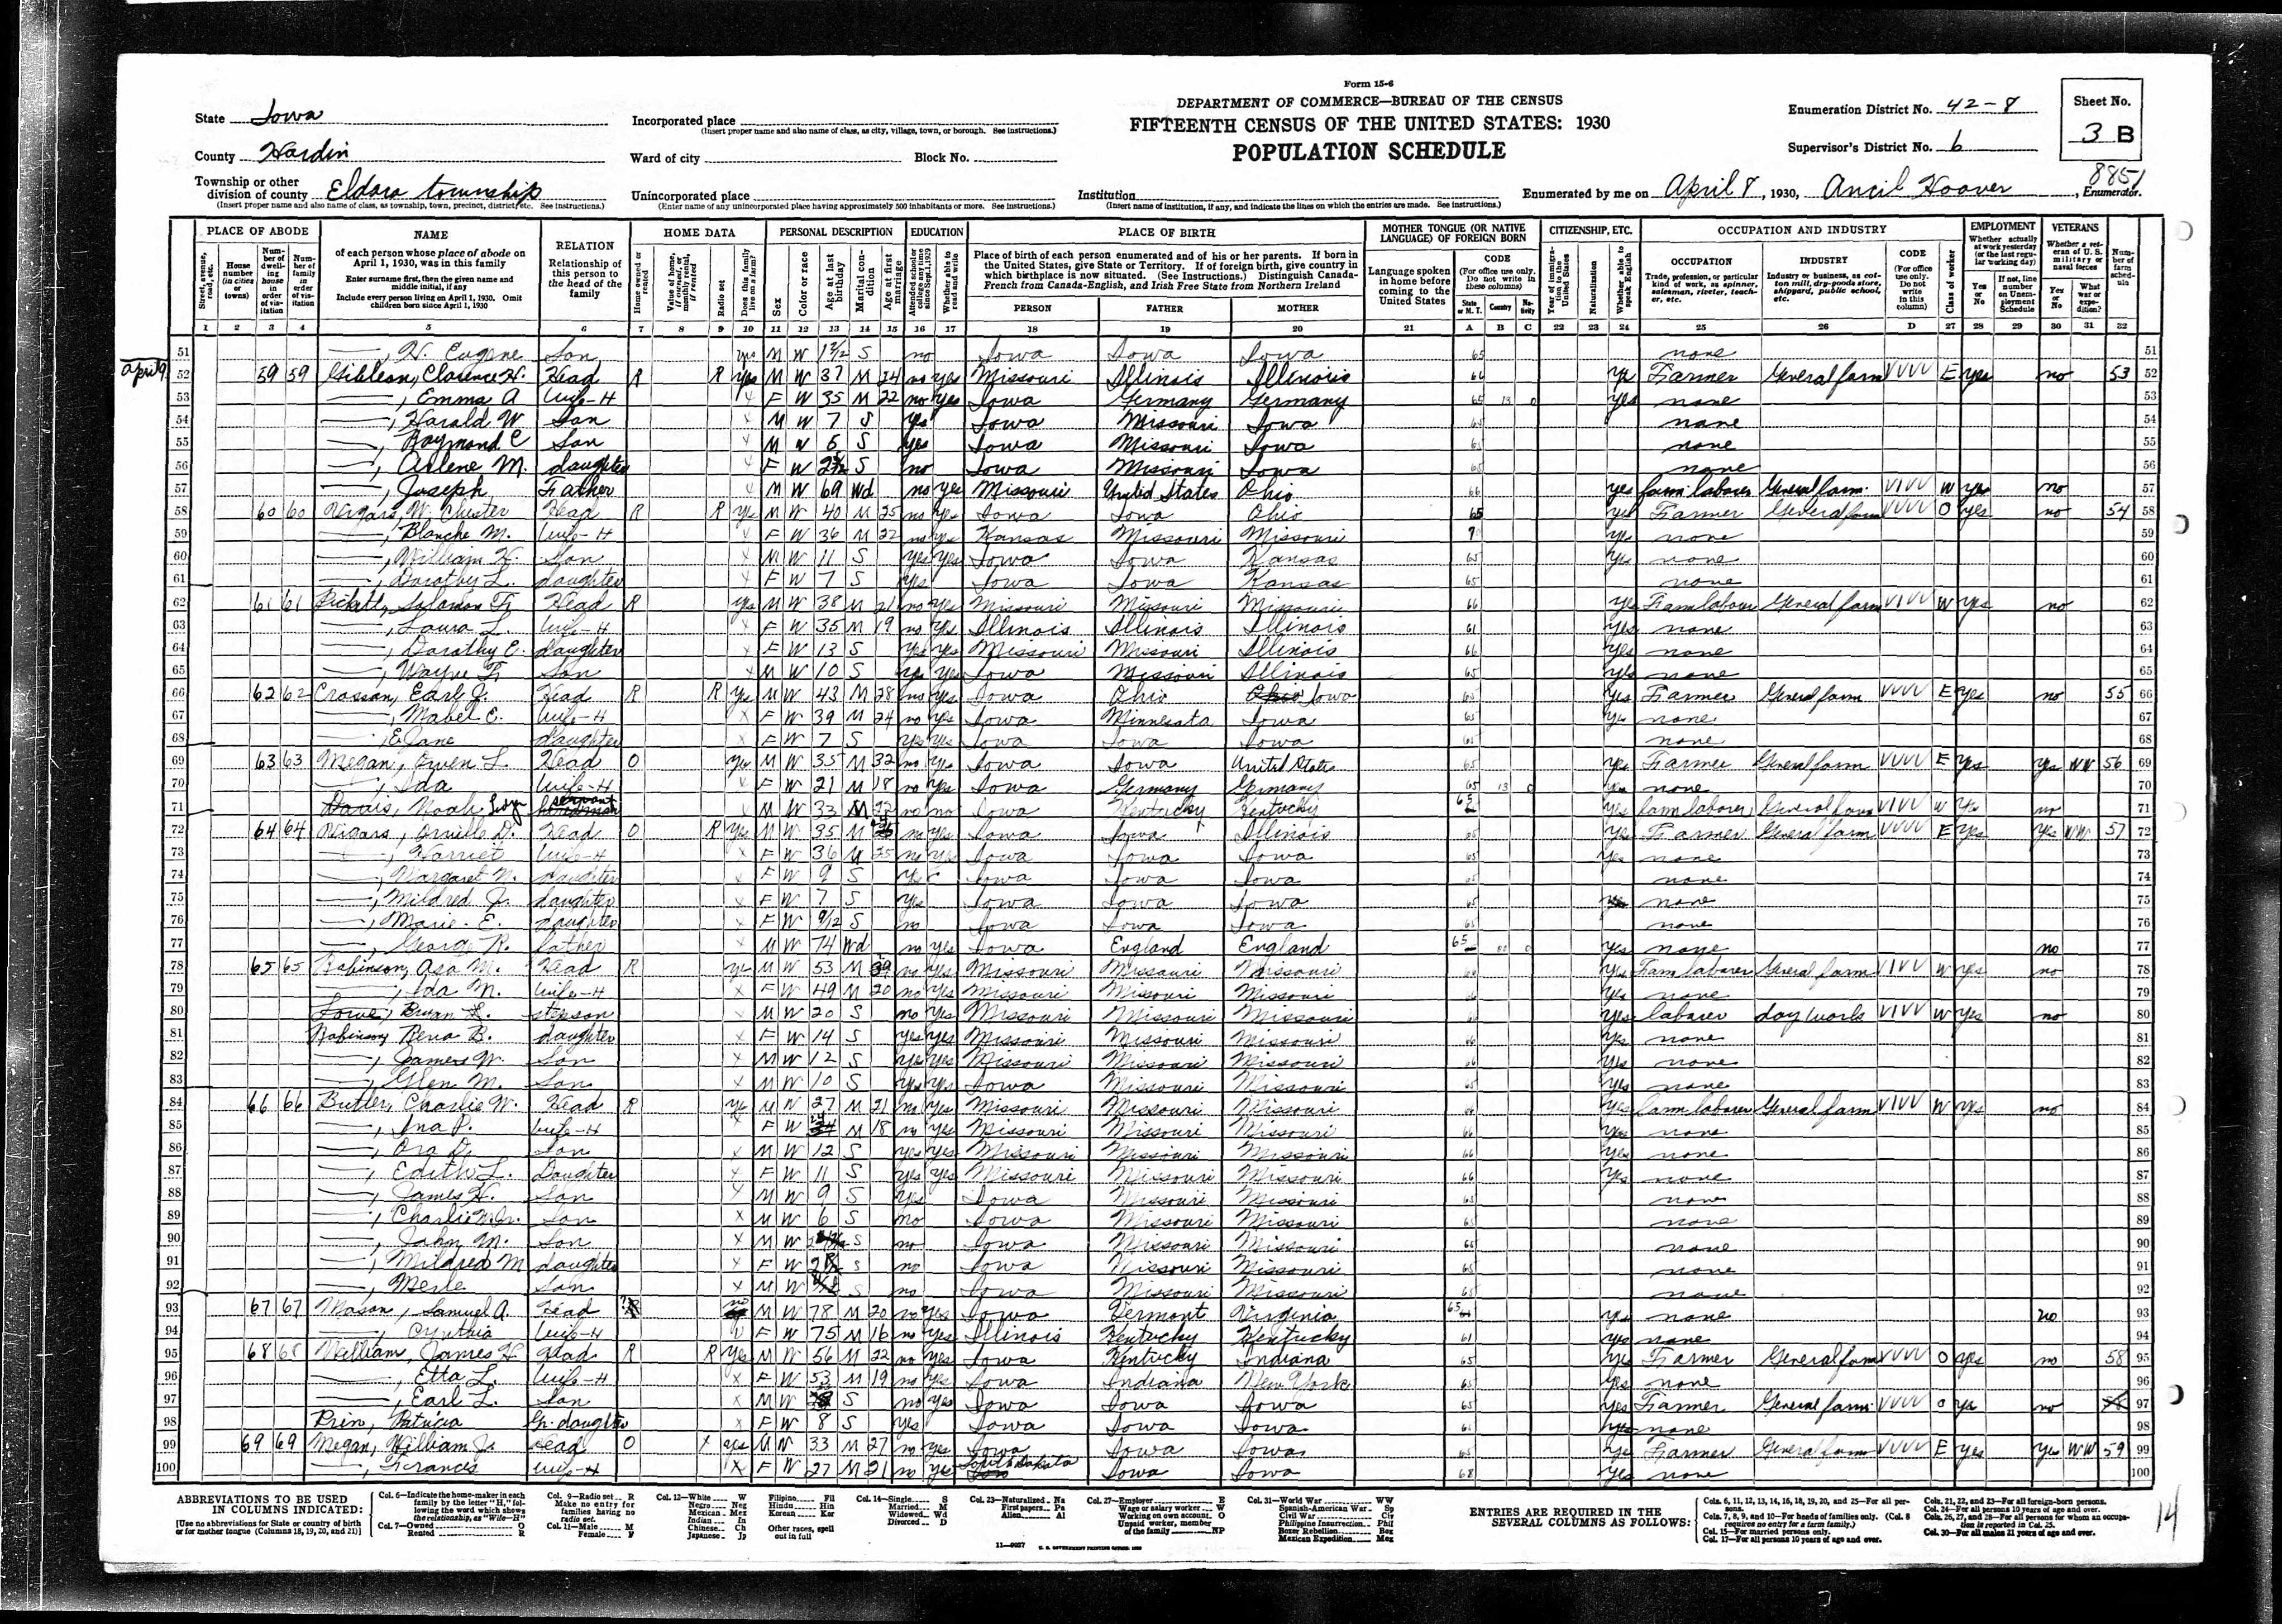 Form 15-6
DEPARTMENT OF COMMERCE—BUREAU OF THE CENSUS
FIFTEENTH CENSUS OF THE UNITED STATES: 1930
POPULATION SCHEDULE
State Iowa
County Hardin
Township or other division of county Eldora township
(Insert proper name and also name of class, as township, town, precinct, district, etc. See instructions.)
Incorporated place
(Insert proper name and also name of class, as city, village, town, or borough. See instructions.)
Ward of city Block No.
Unincorporated place
(Enter name of any unincorporated place having approximately 500 inhabitants or more. See instructions.)
Institution
(Insert name of institution, if any, and indicate the lines on which the entries are made. See instructions.)
Enumeration District No. 42-8
Supervisor's District No. 6
Sheet No. 3 B
8851
Enumerated by me on April 8, 1930, Ancil Hoover, Enumerator.
PLACE OF ABODE NAME RELATION HOME DATA PERSONAL DESCRIPTION EDUCATION PLACE OF BIRTH MOTHER TONGUE (OR NATIVE LANGUAGE) OF FOREIGN BORN CITIZENSHIP, ETC. OCCUPATION AND INDUSTRY EMPLOYMENT VETERANS
PERSON FATHER MOTHER
1 2 3 4 5 6 7 8 9 10 11 12 13 14 15 16 17 18 19 20 21 A B C 22 23 24 25 26 D 27 28 29 30 31 32
51 —, H. Eugene Son yes M W S no Iowa Iowa Iowa 65 none 51
April 9 52 59 59 Clarence H. Head R R yes M W 37 M 24 no yes Missouri Illinois Illinois 66 Farmer General farm VVVV E yes no 53 52
53 —, Emma A Wife-H F W 35 M 22 no yes Iowa Germany Germany 65 13 0 yes none 53
54 —, Harald W Son x M W 7 S yes Iowa Missouri Iowa 65 none 54
55 —, Raymond C Son M W S yes Iowa Missouri Iowa 65 none 55
56 —, Arlene M. daughter F W S no Iowa Missouri Iowa 65 none 56
57 —, Joseph Father M W 69 Wd no yes Missouri United States Ohio 66 yes farm laborer General farm VIVV W yes no 57
58 60 60 W. Chester Head R R yes M W 40 M 25 no yes Iowa Iowa Ohio 65 yes Farmer General farm VVVV O yes no 54 58
59 —, Blanche M. Wife-H F W 36 M 22 no yes Kansas Missouri Missouri yes none 59
60 —, William H. Son x M W 11 S yes yes Iowa Iowa Kansas 65 yes none 60
61 —, Dorothy L. daughter x F W 7 S yes Iowa Iowa Kansas 65 none 61
62 61 61 Pickett, Solomon F. Head R yes M W 38 M 21 no yes Missouri Missouri Missouri 66 yes Farm labour General farm VIVV W yes no 62
63 —, Laura L. Wife-H x F W 35 M 19 no yes Illinois Illinois Illinois 61 yes none 63
64 —, Dorathy E. daughter x F W 13 S yes yes Missouri Missouri Illinois 66 yes none 64
65 —, Wayne F. Son x M W 10 S yes yes Iowa Missouri Illinois 65 yes none 65
66 62 62 Crossan, Earl J. Head R R yes M W 43 M 28 no yes Iowa Ohio Iowa 65 yes Farmer General farm VVVV E yes no 55 66
67 —, Mabel C. Wife-H x F W 39 M 24 no yes Iowa Minnesota Iowa 65 yes none 67
68 —, E Jane daughter x F W 7 S yes yes Iowa Iowa Iowa none 68
69 63 63 Megan, Owen L. Head O yes M W 35 M 32 no yes Iowa Iowa United States 65 yes Farmer General farm VVVV E yes yes WW 56 69
70 —, Ida Wife-H x F W 21 M 18 no yes Iowa Germany Germany 65 13 0 yes none 70
71 Davis, Noah servant x M W 33 M no no Iowa Kentucky Kentucky 65 yes farm laborer General farm VIVV W yes no 71
72 64 64 Orville D. Head O R yes M W 35 M no yes Iowa Iowa Illinois 65 yes Farmer General farm VVVV E yes yes WW 57 72
73 —, Harriet Wife-H x F W 36 M 25 no yes Iowa Iowa Iowa 65 yes none 73
74 —, Margaret N. daughter x F W 9 S yes Iowa Iowa Iowa 65 none 74
75 —, Mildred J. daughter x F W 7 S yes Iowa Iowa Iowa 65 none 75
76 —, Marie E. daughter x F W 9/12 S no Iowa Iowa Iowa 65 none 76
77 —, George R. father x M W 74 Wd no yes Iowa England England 65 00 0 yes none no 77
78 65 65 Robinson, Asa M. Head R yes M W 53 M no yes Missouri Missouri Missouri 66 yes Farm laborer General farm VIVV W yes no 78
79 —, Ida M. Wife-H x F W 49 M 20 no yes Missouri Missouri Missouri 66 yes none 79
80 Lowe, Bryan stepson M W 20 S no yes Missouri Missouri Missouri 66 yes laborer day work VIVV W yes no 80
81 Robinson, Rena B. daughter x F W 14 S yes yes Missouri Missouri Missouri 66 yes none 81
82 —, James W. Son x M W 12 S yes yes Missouri Missouri Missouri 66 yes none 82
83 —, Glen M. Son x M W 10 S yes yes Iowa Missouri Missouri 65 yes none 83
84 66 66 Butler, Charlie W. Head R yes M W 27 M 21 no yes Missouri Missouri Missouri 66 yes farm laborer General farm VIVV W yes no 84
85 —, Ina P. Wife-H x F W M 18 no yes Missouri Missouri Missouri 66 yes none 85
86 —, Ora Son x M W 12 S yes yes Missouri Missouri Missouri 66 yes none 86
87 —, Edith L. Daughter x F W 11 S yes yes Missouri Missouri Missouri 66 yes none 87
88 —, James H. Son x M W 9 S yes Iowa Missouri Missouri 65 none 88
89 —, Charlie Jr. Son x M W 6 S no Iowa Missouri Missouri 65 none 89
90 —, John M. Son x M W S no Iowa Missouri Missouri 65 none 90
91 —, Mildred M daughter x F W S no Iowa Missouri Missouri 65 none 91
92 —, Merle Son x M W S no Iowa Missouri Missouri 65 none 92
93 67 67 Mason, Samuel A. Head no M W 78 M 20 no yes Iowa Vermont Virginia 65 yes none no 93
94 —, Cynthia Wife-H F W 75 M 16 no yes Illinois Kentucky Kentucky 61 yes none 94
95 68 68 William, James H. Head R R yes M W 56 M 22 no yes Iowa Kentucky Indiana 65 yes Farmer General farm VVVV O yes no 58 95
96 —, Etta L. Wife-H x F W 53 M 19 no yes Iowa Indiana New York 65 yes none 96
97 —, Earl L. Son x M W S no yes Iowa Iowa Iowa 65 yes Farmer General farm VVVV O yes no 97
98 Prin, Patricia Gr. daughter x F W 8 S yes Iowa Iowa Iowa 65 none 98
99 69 69 Megan, William J. Head O x yes M W 33 M 27 no yes Iowa Iowa Iowa 65 yes Farmer General farm VVVV E yes yes WW 59 99
100 —, Frances Wife-H x F W 27 M 21 no yes South Dakota Iowa Iowa 68 yes none 100
ABBREVIATIONS TO BE USED IN COLUMNS INDICATED:
[Use no abbreviations for State or country of birth or for mother tongue (Columns 18, 19, 20, and 21)]
Col. 6—Indicate the home-maker in each family by the letter "H," following the word which shows the relationship, as "Wife—H"
Col. 7—Owned O Rented R
Col. 9—Radio set R Make no entry for families having no radio set.
Col. 11—Male M Female F
Col. 12—White W Negro Neg Mexican Mex Indian In Chinese Ch Japanese Jp Filipino Fil Hindu Hin Korean Kor Other races, spell out in full
Col. 14—Single S Married M Widowed Wd Divorced D
Col. 23—Naturalized Na First papers Pa Alien Al
Col. 27—Employer E Wage or salary worker W Working on own account O Unpaid worker, member of the family NP
Col. 31—World War WW Spanish-American War Sp Civil War Civ Philippine Insurrection Phil Boxer Rebellion Box Mexican Expedition Mex
ENTRIES ARE REQUIRED IN THE SEVERAL COLUMNS AS FOLLOWS:
Cols. 6, 11, 12, 13, 14, 16, 18, 19, 20, and 25—For all persons.
Cols. 7, 8, 9, and 10—For heads of families only. (Col. 8 requires no entry for a farm family.)
Col. 15—For married persons only.
Col. 17—For all persons 10 years of age and over.
Cols. 21, 22, and 23—For all foreign-born persons.
Col. 24—For all persons 10 years of age and over.
Cols. 26, 27, and 28—For all persons for whom an occupation is reported in Col. 25.
Col. 30—For all males 21 years of age and over.
14